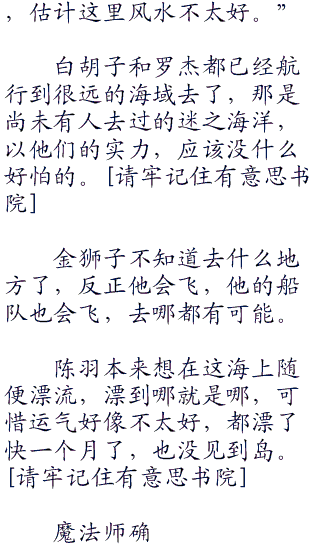 ，估计这里风水不太好。”
白胡子和罗杰都已经航
行到很远的海域去了，那是
尚未有人去过的迷之海洋，
以他们的实力，应该没什么
好怕的。[请牢记住有意思书
院]
金狮子不知道去什么地
方了，反正他会飞，他的船
队也会飞，去哪都有可能。
陈羽本来想在这海上随
便漂流，漂到哪就是哪，可
惜运气好像不太好，都漂了
快一个月了，也没见到岛。
[请牢记住有意思书院]
魔法师确